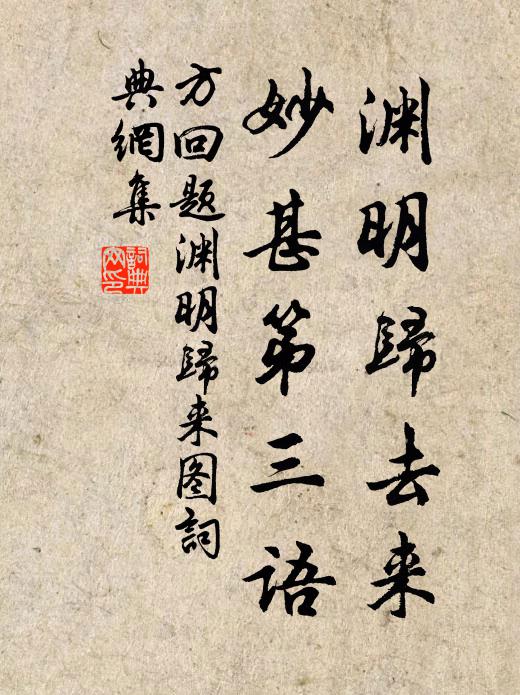 渊明歸去来
妙甚第三语
方回题渊明歸来图詞
典網集
詞典
文印